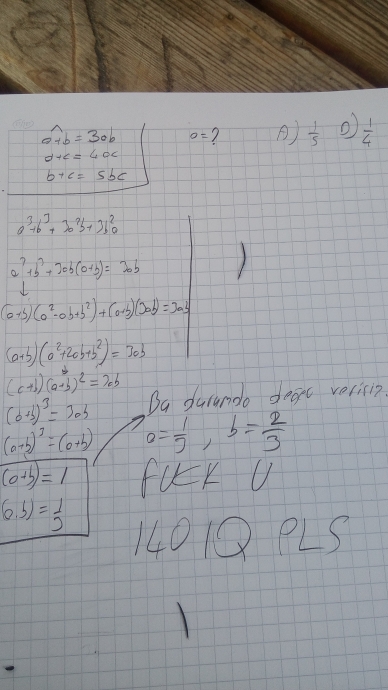 a+b = 3ab
a+c = 4ac
b+c = 5bc
a=?
A) 1/5 D) 1/4
a³+b³+3a²b+3b²a
a³+b³+3ab(a+b)=3ab
↓
(a+b)(a²-ab+b²)+(a+b)(3ab)=3ab
(a+b)(a²+2ab+b²)=3ab
(a+b)(a+b)²=3ab
(a+b)³=3ab
(a+b)³=(a+b)
(a+b)=1
(a.b)=1/3
Bu durumda değer veririz.
a=1/3, b=2/3
FUCK U
140 IQ PLS